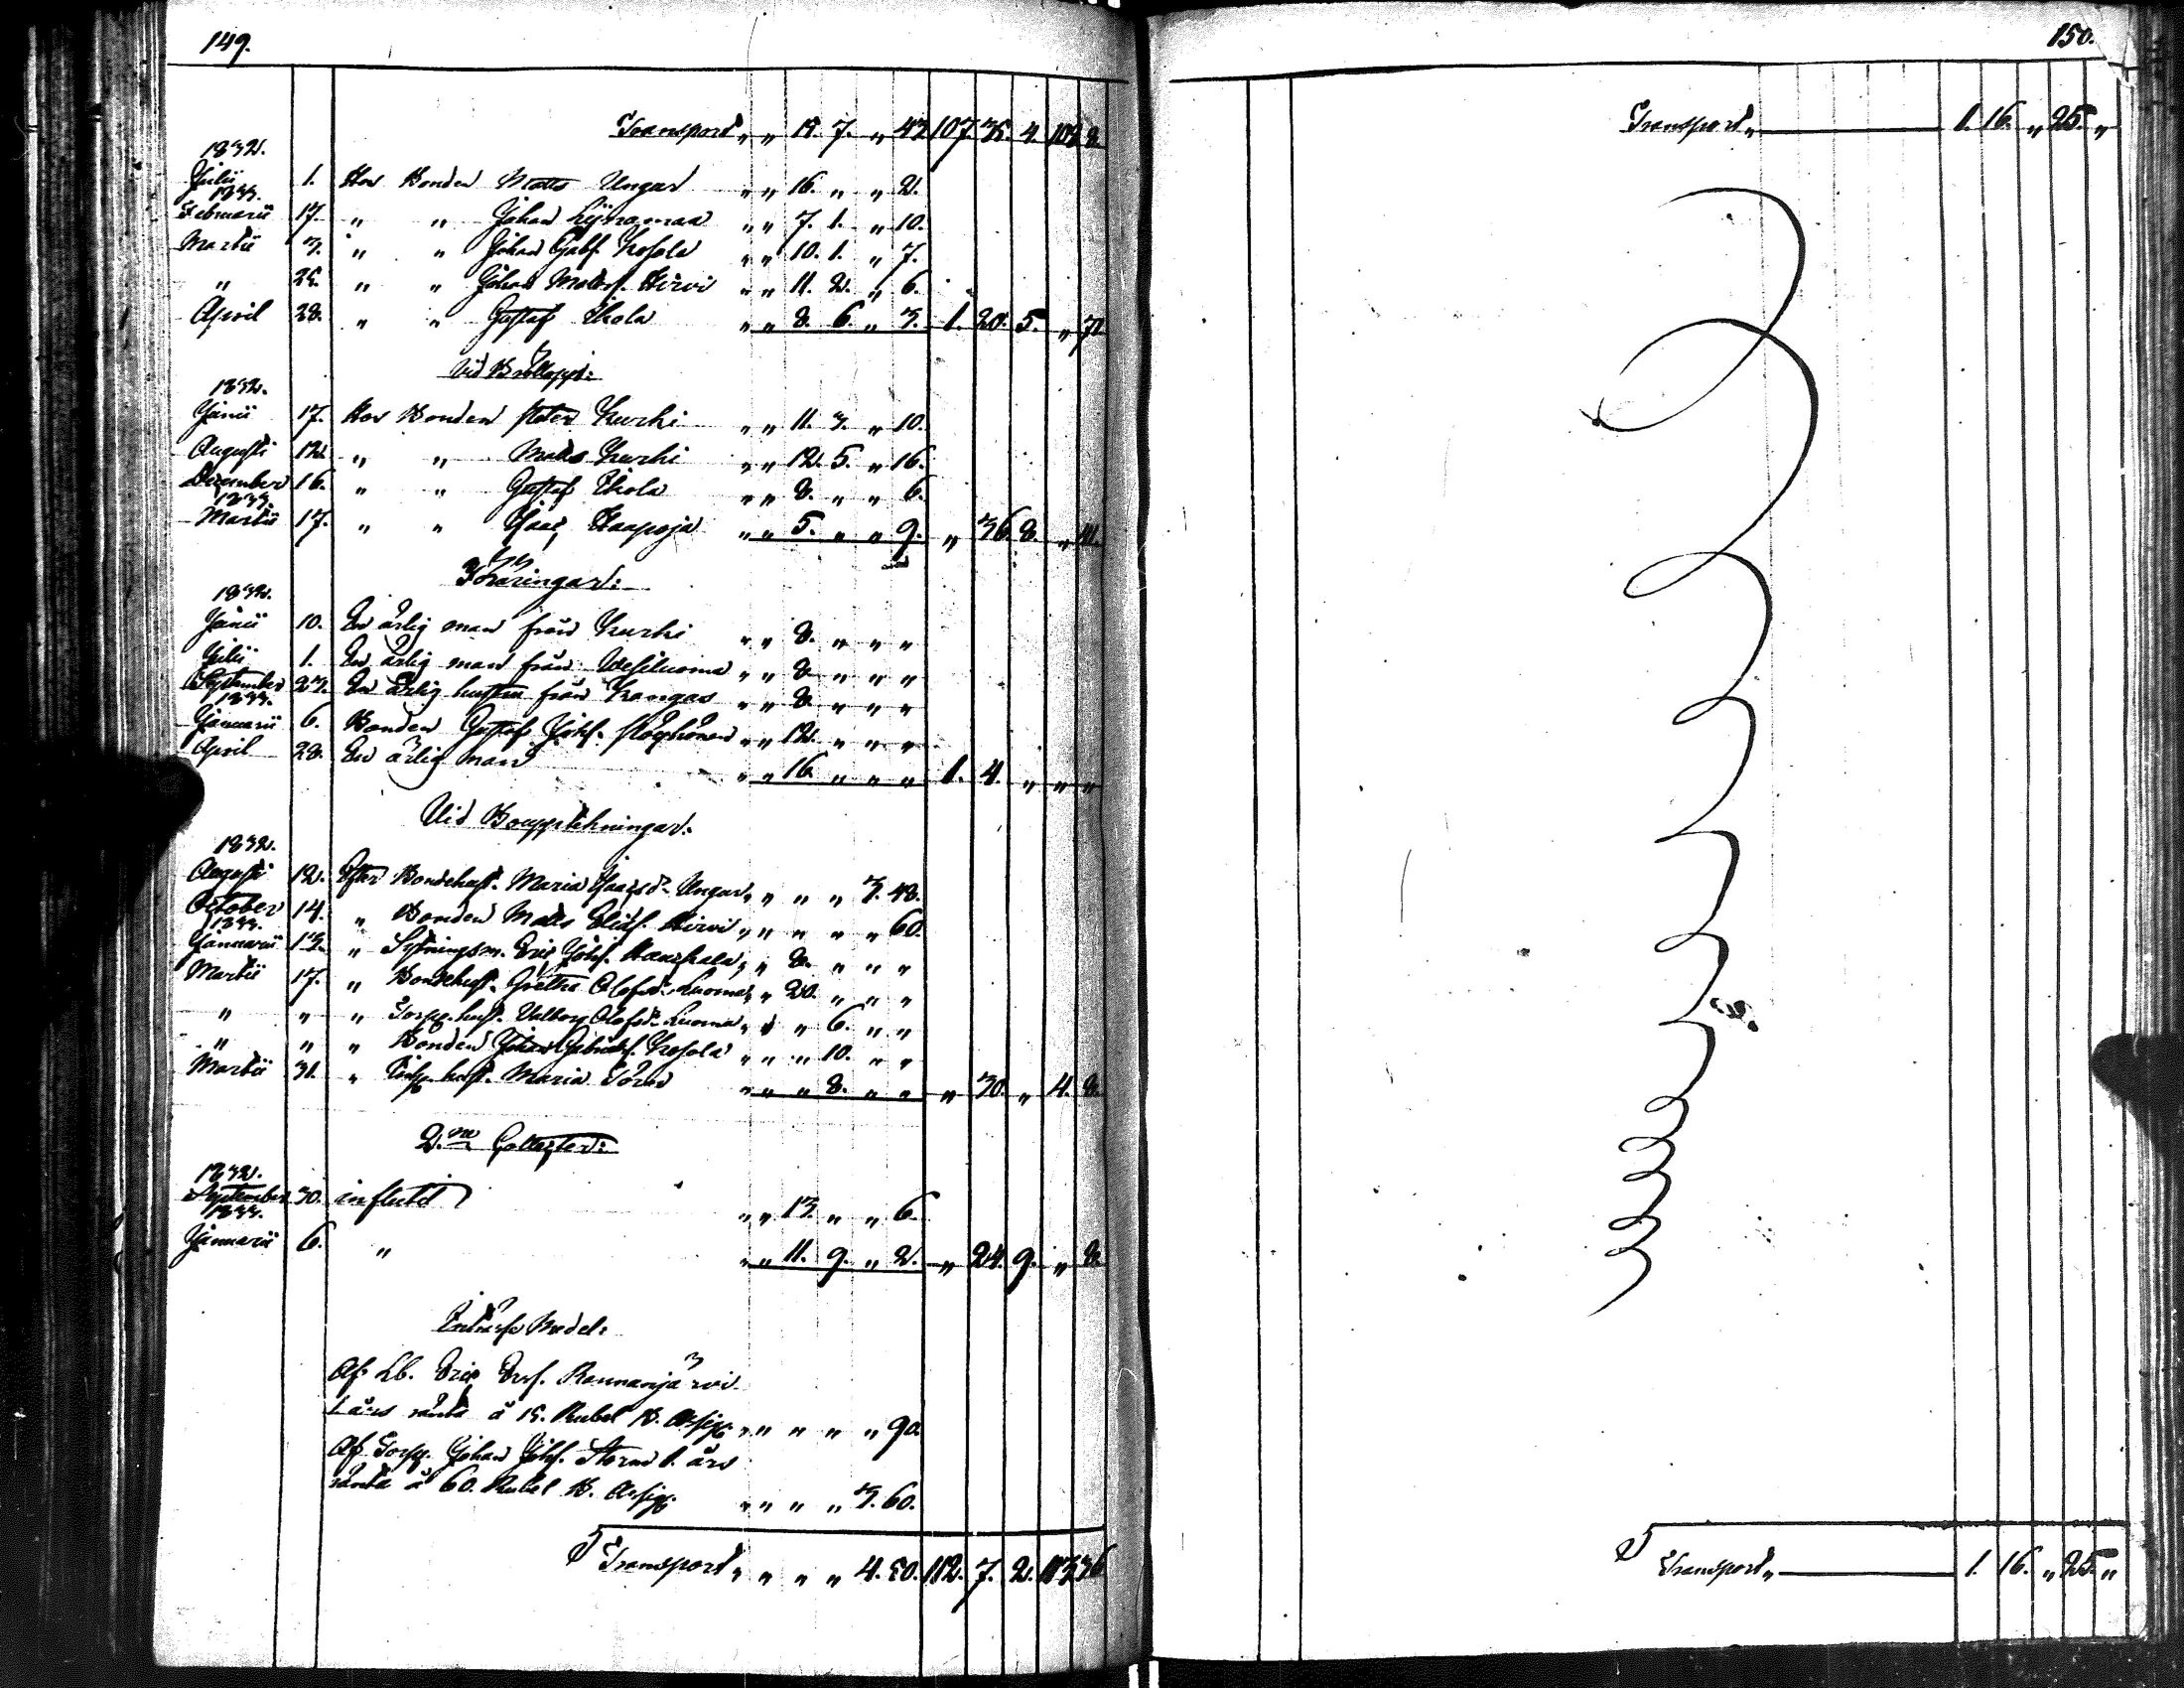 149.
Transport „ „ 15. 7. „ 43 107 35. 4. 109 8.
1832.
Julii 1. Hos Bonden Matts Ungar „ „ 16. „ „ 2.
1833.
Februarii 17. „ „ Johan Lijnamaa „ „ 7. 1. „ 10.
Martii 3. „ „ Johan Gabf. Kosola „ „ 10. 1. „ 7.
„ 25. „ „ Johan Mattsf. Hirvi „ „ 11. 2. „ 6.
April 28. „ „ Gustaf Ikola „ „ 8. 6. „ 3. 1. 20. 5. „
Vid Bröllopp:
1832.
Junii 17. Hos Bonden Peter Kurki „ „ 11. 3. „ 10.
Augusti 12. „ „ Matts Kurki „ „ 12. 5. „ 16.
December 16. „ „ Gustaf Ikola „ „ 8. „ „ 6.
1833.
Martii 17. „ „ Isaac Haapoja „ „ 5. „ „ 9. „ 36. 8. „ 41.
Föräringar:
1832.
Junii 10. En ärlig man från Kurki „ „ 8. „ „ „
Julii 1. En ärlig man från Wesiluoma „ „ 8. „ „ „
September 23. En ärlig hustru från Kangas „ „ 8. „ „ „
1833.
Januarii 6. Bonden Gustaf Johf. Pöyhönen „ „ 12. „ „ „
April 28. En ärlig man „ „ 16. „ „ „ 1. 4. „ „ „
Vid Boupptekningar:
1832.
Augusti 12. Efter Bondehust. Maria Isaacsd. Ungar „ „ „ „ 3. 48.
October 14. „ Bonden Matts Eliaf. Hirvi „ „ „ „ „ 60.
1833.
Januarii 13. „ Sytningsm. Eric Johf. „ „ 8. „ „ „
Martii 17. „ Bondehust. Gretha Olofsd. Luoma „ „ 20. „ „ „
„ „ „ Torp. hust. Valborg Olofsd. Luoma „ „ „ 6. „ „
„ „ „ Bonden Johan Gabrielsf. Kosola „ „ „ 10. „ „
Martii 31. „ hust. Maria „ „ „ 8. „ „ „ 30. „ 4. 8.
2.ne Collecter:
1832.
September 30. influtit „ „ 13. „ „ 6.
1833.
Januarii 6. „ „ „ 11. 9. „ 2. „ 24. 9. „ 8.
Intresse Medel:
Af Lb. Eric Ersf. Raunanjärvi
1 års ränta å 15. Rubel B. Assig. „ „ „ „ „ 90.
Af Torp. Johan Johf. Storm 1. års
ränta å 60. Rubel B. Assig. „ „ „ „ 3. 60.
Transport „ „ „ „ 4. 50. 112. 7. 2. 113 36
150.
Transport „ 1. 16. „ 25. „
Transport „ 1. 16. „ 25. „